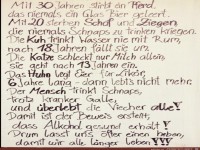 Mit 30 Jahren stirbt ein Pferd,
das niemals ein Glas Bier geleert.
Mit 20 sterben Schaf und Ziegen,
die niemals Schnaps zu trinken kriegen.
Die Kuh trinkt Wasser nie mit Rum,
nach 18 Jahren fällt sie um.
Die Katze schleckt nur Milch allein,
sie geht nach 13 Jahren ein.
Das Huhn legt Eier für Likör,
6 Jahre lang - dann lebt's nicht mehr.
Der Mensch trinkt Schnaps,
trotz kranker Galle,
und überlebt die Viecher alle!
Damit ist der Beweis erstellt,
dass Alkohol gesund erhält!
Drum lasst uns öfter einen heben,
damit wir alle länger leben!!!